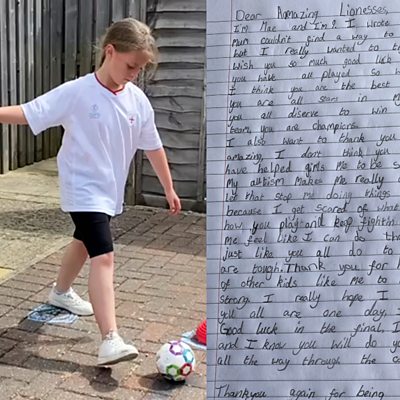 Dear Aamazing Lionesses,
I'm Mae and I'm 9. I wrote
Mum couldn't find a way to
but I really wanted to
wish you so much good luck
you have all played so
I think you are the best
you are all stars in
you all diserve to win
team, you are champions.
I also want to thank you
amazing, I don't think you
have helped girls like me to be
My autism makes me really
lot that stop me doing things
because I get scared of what
how you play and keep fightin
me feel like I can do
just like you all do to
are tough. Thank you for
of other kids like me to
strong. I really hope I
you all are one day.
Good luck in the final, I
and I know you will do
all the way through the
Thankyou again for being